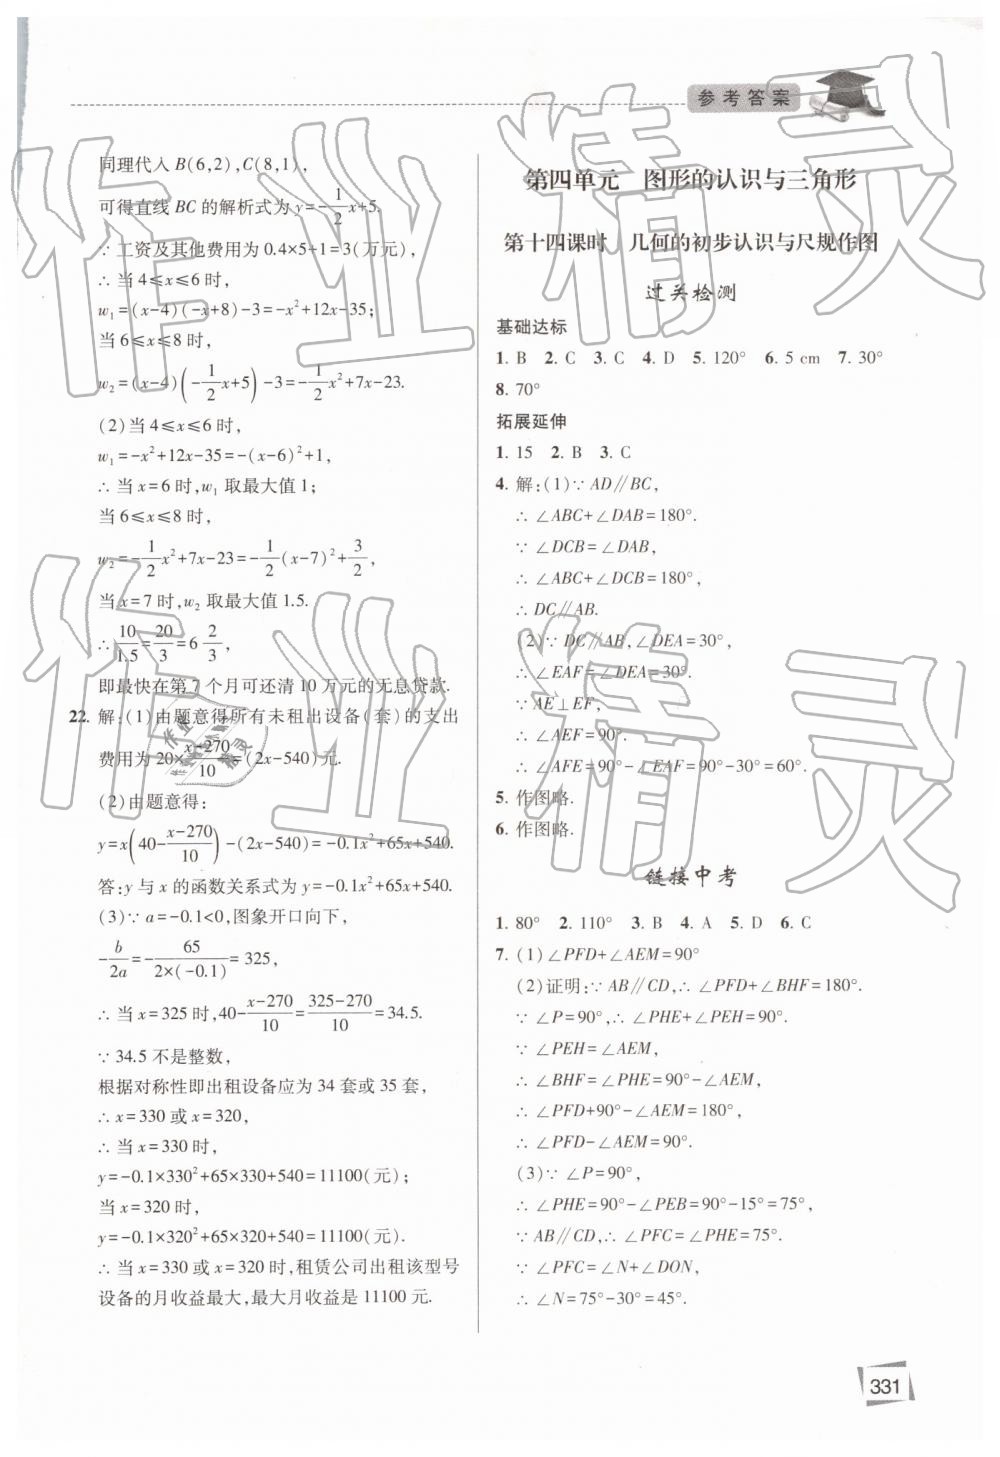 参考答案
同理代入 B(6,2),C(8,1),
可得直线 BC 的解析式为 y=-1/2x+5.
∵ 工资及其他费用为 0.4×5+1=3(万元),
∴ 当 4≤x≤6 时,
w₁=(x-4)(-x+8)-3=-x²+12x-35;
当 6≤x≤8 时,
w₂=(x-4)(-1/2x+5)-3=-1/2x²+7x-23.
(2)当 4≤x≤6 时,
w₁=-x²+12x-35=-(x-6)²+1,
∴ 当 x=6 时,w₁ 取最大值 1;
当 6≤x≤8 时,
w₂=-1/2x²+7x-23=-1/2(x-7)²+3/2,
当 x=7 时,w₂ 取最大值 1.5.
∴ 10/1.5=20/3=6 2/3,
即最快在第 7 个月可还清 10 万元的无息贷款.
22. 解:(1)由题意得所有未租出设备(套)的支出
费用为 20×x-270/10=(2x-540)元.
(2)由题意得:
y=x(40-x-270/10)-(2x-540)=-0.1x²+65x+540.
答:y 与 x 的函数关系式为 y=-0.1x²+65x+540.
(3)∵ a=-0.1<0,图象开口向下,
-b/2a=-65/2×(-0.1)=325,
∴ 当 x=325 时,40-x-270/10=325-270/10=34.5.
∵ 34.5 不是整数,
根据对称性即出租设备应为 34 套或 35 套,
∴ x=330 或 x=320,
∴ 当 x=330 时,
y=-0.1×330²+65×330+540=11100(元);
当 x=320 时,
y=-0.1×320²+65×320+540=11100(元).
∴ 当 x=330 或 x=320 时,租赁公司出租该型号
设备的月收益最大,最大月收益是 11100 元.
第四单元 图形的认识与三角形
第十四课时 几何的初步认识与尺规作图
过关检测
基础达标
1. B 2. C 3. C 4. D 5. 120° 6. 5 cm 7. 30°
8. 70°
拓展延伸
1. 15 2. B 3. C
4. 解:(1)∵ AD∥BC,
∴ ∠ABC+∠DAB=180°.
∵ ∠DCB=∠DAB,
∴ ∠ABC+∠DCB=180°,
∴ DC∥AB.
(2)∵ DC∥AB,∠DEA=30°,
∴ ∠EAF=∠DEA=30°.
∵ AE⊥EF,
∴ ∠AEF=90°.
∴ ∠AFE=90°-∠EAF=90°-30°=60°.
5. 作图略.
6. 作图略.
链接中考
1. 80° 2. 110° 3. B 4. A 5. D 6. C
7. (1)∠PFD+∠AEM=90°
(2)证明:∵ AB∥CD,∴ ∠PFD+∠BHF=180°.
∵ ∠P=90°,∴ ∠PHE+∠PEH=90°.
∵ ∠PEH=∠AEM,
∴ ∠BHF=∠PHE=90°-∠AEM,
∴ ∠PFD+90°-∠AEM=180°,
∴ ∠PFD-∠AEM=90°.
(3)∵ ∠P=90°,
∴ ∠PHE=90°-∠PEB=90°-15°=75°,
∵ AB∥CD,∴ ∠PFC=∠PHE=75°.
∵ ∠PFC=∠N+∠DON,
∴ ∠N=75°-30°=45°.
331
作业精灵
作业精灵